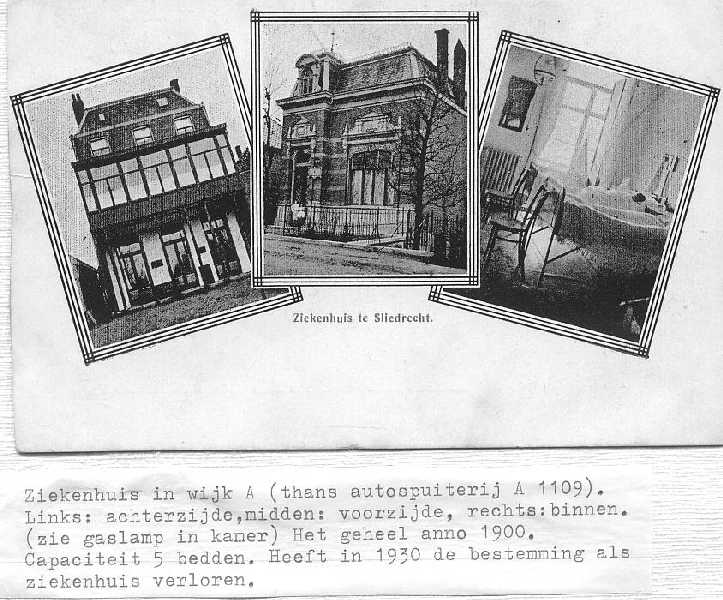 Ziekenhuis te Sliedrecht.
Ziekenhuis in wijk A (thans autospuiterij A 1109).
Links: achterzijde,midden: voorzijde, rechts:binnen.
(zie gaslamp in kamer) Het geheel anno 1900.
Capaciteit 5 bedden. Heeft in 1930 de bestemming als
ziekenhuis verloren.